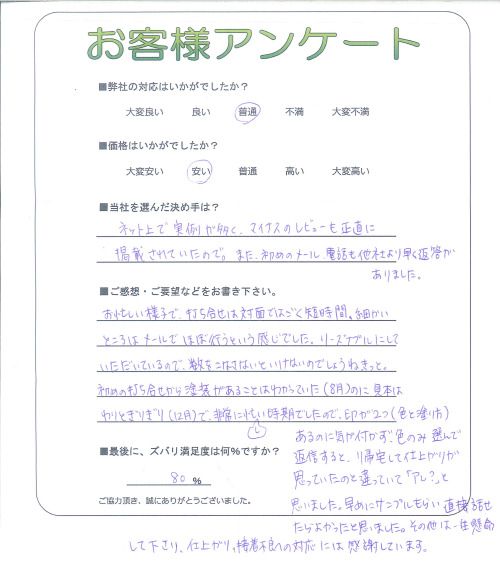 お客様アンケート
■弊社の対応はいかがでしたか？
大変良い 良い 普通 不満 大変不満
■価格はいかがでしたか？
大変安い 安い 普通 高い 大変高い
■当社を選んだ決め手は？
ネット上で実例が多く、マイナスのレビューも正直に
掲載されていたので。また、初めのメール、電話も他社より早く返答が
ありました。
■ご感想・ご要望などをお書き下さい。
お忙しい様子で、打ち合せは対面ではごく短時間。細かい
ところはメールでほぼ行うという感じでした。リーズナブルにして
いただいているので、数をこなさないといけないのでしょうねきっと。
初めの打ち合せから塗装があることはわかっていた(8月)のに見本は
わりとぎりぎり(12月)で、非常に忙しい時期でしたので、印が2つ(色と塗り方)
あるのに気が付かず、色のみ選んで
返信すると、帰宅して仕上がりが
思っていたのと違っていて「アレ？」と
思いました。早めにサンプルもらい直接話せ
たらよかったと思いました。その他は一生懸命
して下さり、仕上がり、接着不良への対応には感謝しています。
■最後に、ズバリ満足度は何%ですか？
80 %
ご協力頂き、誠にありがとうございました。